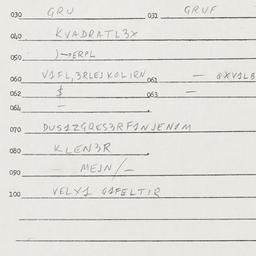 030 GRU 031 GRUF
040 KVADRATL3X
050 )→ERPL
060 V1FL,3RLEJKOLIRN 061 —
062 $ 063 —
064 —
070
080 KLEN3R
090 — MEJN/—
100 VELX1 G1FELTIR